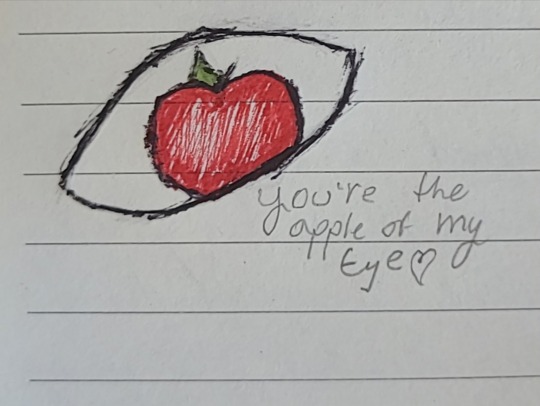 you're the
apple of my
Eye♡